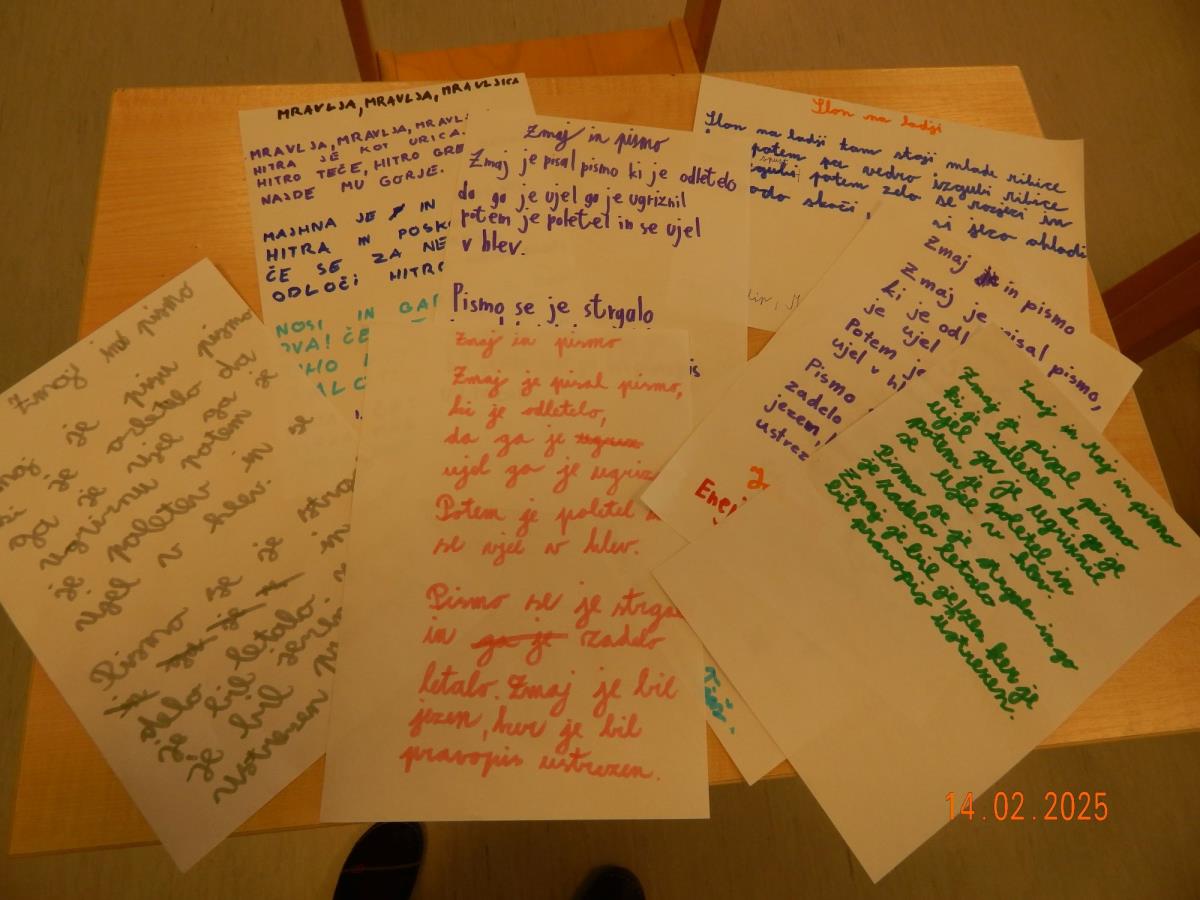 MRAVLJA, MRAVLJA, MRAVLJICA
MRAVLJA, MRAVLJA, MRAVL
HITRA JE KOT URICA.
HITRO TEČE, HITRO GRE
NAJDE MU GORJE.
MAJHNA JE IN
HITRA IN POSK
ČE SE ZA NE
ODLOČI HITRO
NOSI IN GA
OVA! ČE
Zmaj in pismo
Zmaj je pisal pismo ki je odletelo
da ga je ujel ga je ugriznil
potem je poletel in se ujel
v hlev.
Pismo se je strgalo
Slon na ladji
Slon na ladji tam stoji mlade ribice
potem pa vedro izgubi ribice
spusti
izgubi potem zelo se razjezi in
odo skoči,
si jezo ohladi
Zmaj in pismo
Zmaj je pisal pismo,
ki je odl
je ujel
Potem je
ujel v hl
Pismo
zadelo
jezen,
ustrez
2.
Enej
Zmaj in pismo
maj je pisu pismo
ki je odletelo da
ga je ujel ga
ugriznu potem je
je poletev in se
ujel v hlev.
Pismo se je strga
ga je
je in
delo letalo
je bil
je bil jezn
ustrezen
Zmaj in pismo
Zmaj je pisal pismo,
ki je odletelo,
da ga je
ujel ga je ugriz
Potem je poletel
se ujel v hlev.
Pismo se je strga
in ga je zadelo
letalo. Zmaj je bil
jezen, ker je bil
pravopis ustrezen.
Zmaj in pismo
Zmaj je pisal pismo
ki je odletelo da ga je
ujel ga je ugriznil
potem je poletel in
se ujel v hlev.
Pismo se je strgalo in ga
je zadelo letalo
Zmaj je bil jezen ker je
bil pravopis ustrezen.
14.02.2025